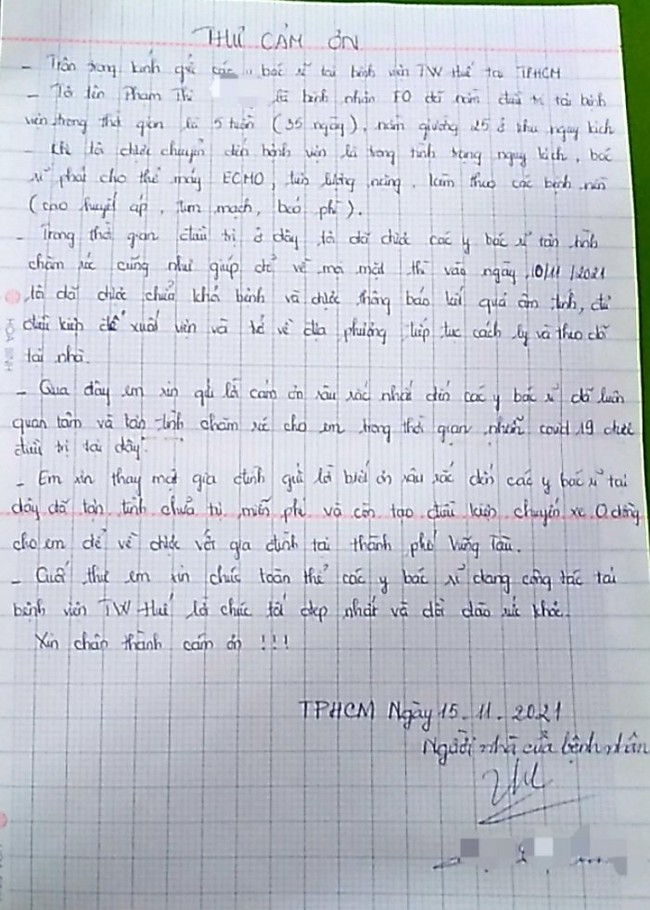 THƯ CẢM ƠN
- Trân trọng kính gửi các y bác sĩ tại bệnh viện TW Huế tại TPHCM
- Tôi tên Phạm Thị là bệnh nhân F0 đã nằm điều trị tại bệnh
viện trong thời gian là 5 tuần (35 ngày), nằm giường 25 ở khu nguy kịch
- Khi tôi được chuyển đến bệnh viện là trong tình trạng nguy kịch, bác
sĩ phải cho thở máy ECMO, tiên lượng nặng, kèm theo các bệnh nền
(cao huyết áp, tim mạch, béo phì).
- Trong thời gian điều trị ở đây tôi đã được các y bác sĩ tận tình
chăm sóc cũng như giúp đỡ về mọi mặt thì vào ngày 10/11/2021
tôi đã được chữa khỏi bệnh và được thông báo kết quả âm tính, đủ
điều kiện để xuất viện và trở về địa phương tiếp tục cách ly và theo dõi
tại nhà.
- Qua đây em xin gửi lời cảm ơn sâu sắc nhất đến các y bác sĩ đã luôn
quan tâm và tận tình chăm sóc cho em trong thời gian nhiễm covid 19 được
điều trị tại đây.
- Em xin thay mặt gia đình gửi lời biết ơn sâu sắc đến các y bác sĩ tại
đây đã tận tình chữa trị, miễn phí và còn tạo điều kiện chuyến xe 0 đồng
cho em để về được với gia đình tại thành phố Vũng Tàu.
- Cuối thư em xin chúc toàn thể các y bác sĩ đang công tác tại
bệnh viện TW Huế lời chúc tốt đẹp nhất và dồi dào sức khỏe.
Xin chân thành cảm ơn !!!
TPHCM Ngày 15.11.2021
Người nhà của bệnh nhân
HÒA BÌNH